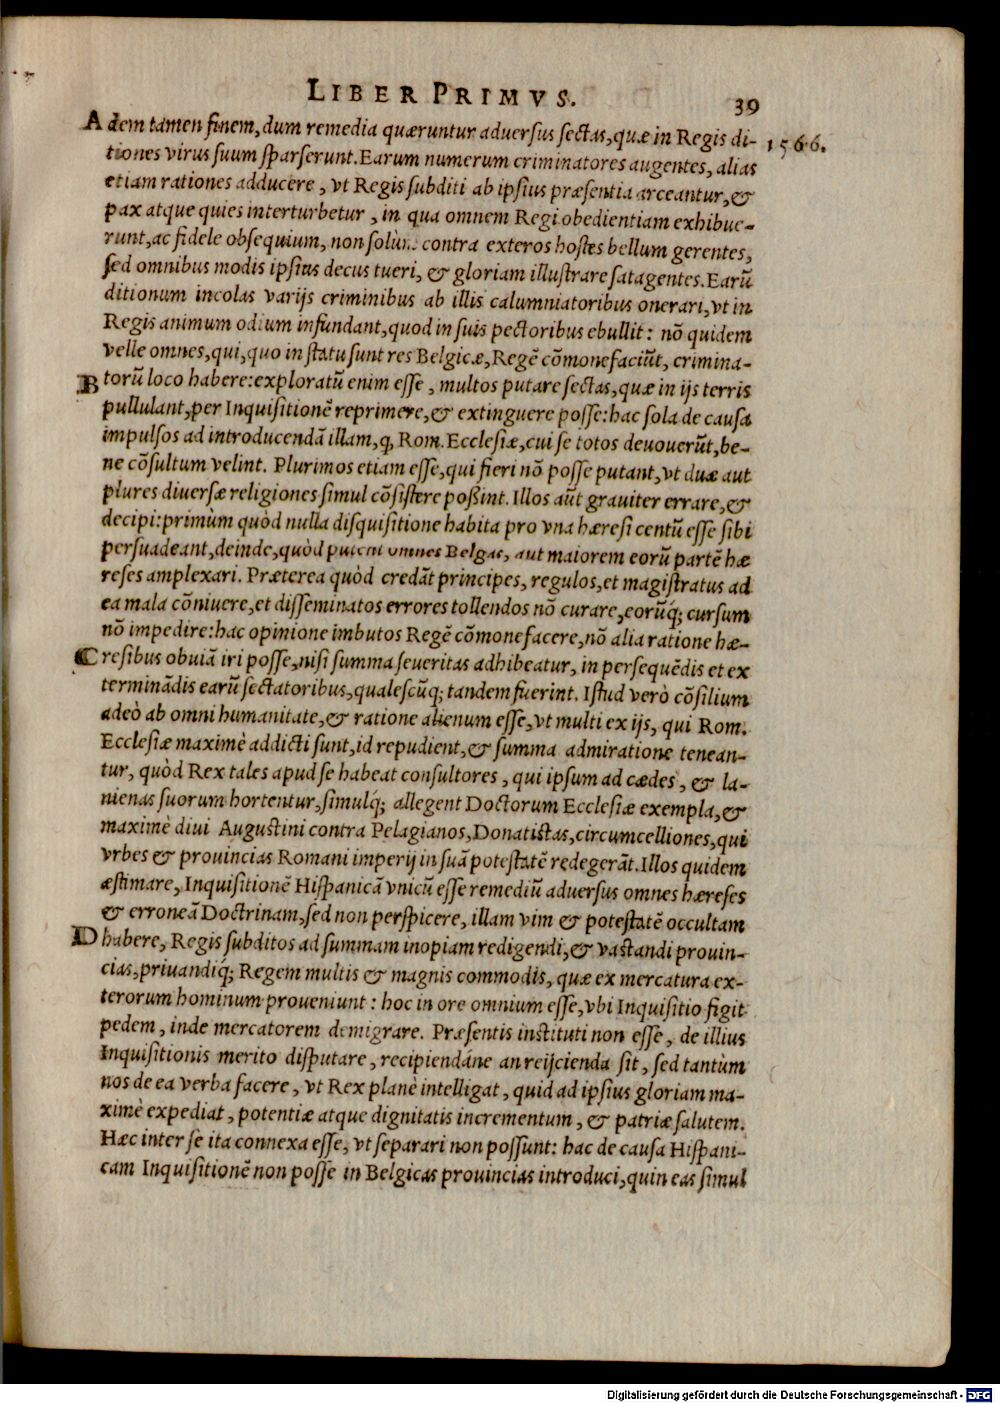 LIBER PRIMVS. 39
A dem tamen finem, dum remedia quæruntur adversus sectas, quæ in Regis di- 1566.
tiones virus suum sparserunt. Earum numerum criminatores augentes, alias
etiam rationes adducere, vt Regis subditi ab ipsius præsentia arceantur, &
pax atque quies interturbetur, in qua omnem Regi obedientiam exhibue-
runt, ac fidele obsequium, non solùm contra exteros hostes bellum gerentes,
sed omnibus modis ipsius decus tueri, & gloriam illustrare satagentes. Earū
ditionum incolas varijs criminibus ab illis calumniatoribus onerari, vt in
Regis animum odium infundant, quod in suis pectoribus ebullit: nō quidem
velle omnes, qui, quo in statu sunt res Belgicæ, Regē cōmonefaciūt, crimina-
B torū loco habere: exploratū enim esse, multos putare sectas, quæ in ijs terris
pullulant, per Inquisitionē reprimere, & extinguere posse: hac sola de causa
impulsos ad introducendā illam, q, Rom. Ecclesiæ, cui se totos devoverūt, be-
ne cōsultum velint. Plurimos etiam esse, qui fieri nō posse putant, vt duæ aut
plures diversæ religiones simul cōsistere poßint. Illos aūt graviter errare, &
decipi: primùm quòd nulla disquisitione habita pro vna hæresi centū esse sibi
persuadeant, deinde, quòd putent omnes Belgas, aut maiorem eorū partē hæ
reses amplexari. Præterea quòd credāt principes, regulos, et magistratus ad
ea mala cōnivere, et disseminatos errores tollendos nō curare, eorūq́; cursum
nō impedire: hac opinione imbutos Regē cōmonefacere, nō alia ratione hæ-
C resibus obuiā iri posse, nisi summa severitas adhibeatur, in persequēdis et ex
terminādis earū sectatoribus, qualescūq; tandem fuerint. Istud verò cōsilium
adeò ab omni humanitate, & ratione alienum esse, vt multi ex ijs, qui Rom.
Ecclesiæ maximè addicti sunt, id repudient, & summa admiratione tenean-
tur, quòd Rex tales apud se habeat consultores, qui ipsum ad cædes, & la-
nienas suorum hortentur, simulq́; allegent Doctorum Ecclesiæ exempla, &
maximè divi Augustini contra Pelagianos, Donatistas, circumcelliones, qui
vrbes & provincias Romani imperij in suā potestatē redegerāt. Illos quidem
æstimare, Inquisitionē Hispanicā vnicū esse remediū adversus omnes hæreses
& erroneā Doctrinam, sed non perspicere, illam vim & potestatē occultam
D habere, Regis subditos ad summam inopiam redigendi, & vastandi provin-
cias, privandiq́; Regem multis & magnis commodis, quæ ex mercatura ex-
terorum hominum proveniunt: hoc in ore omnium esse, vbi Inquisitio figit
pedem, inde mercatorem demigrare. Præsentis instituti non esse, de illius
Inquisitionis merito disputare, recipiendáne an reijcienda sit, sed tantùm
nos de ea verba facere, vt Rex planè intelligat, quid ad ipsius gloriam ma-
ximè expediat, potentiæ atque dignitatis incrementum, & patriæ salutem.
Hæc inter se ita connexa esse, vt separari non possunt: hac de causa Hispani-
cam Inquisitionē non posse in Belgicas provincias introduci, quin eas simul
Digitalisierung gefördert durch die Deutsche Forschungsgemeinschaft - DFG